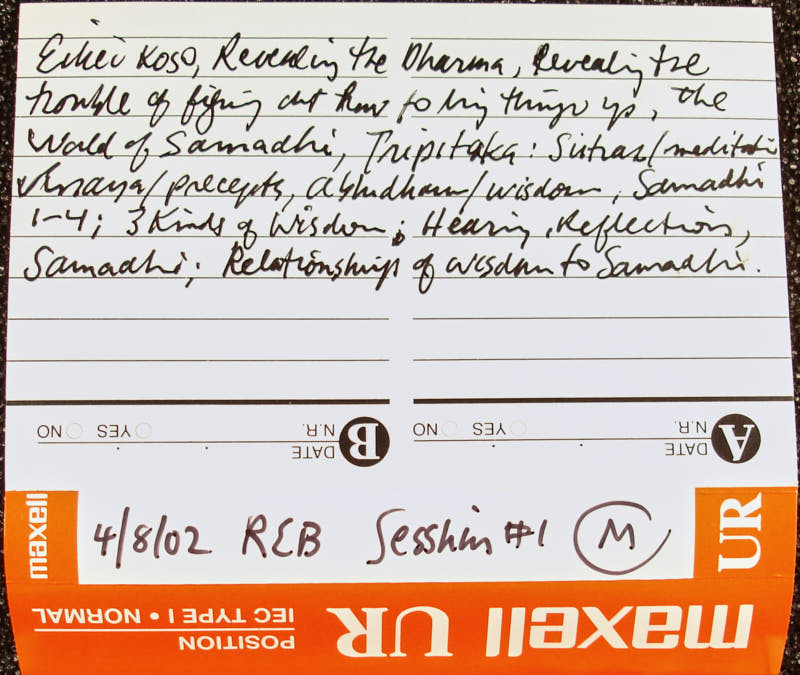 Eihei Koso, Revealing the Dharma, Revealing the
trouble of figuring out how to bring things up, the
World of Samadhi, Tripitaka: Sutras/meditation
Vinaya/precepts, abhidharma/wisdom, Samadhi
1-4; 3 Kinds of Wisdom; Hearing, Reflection,
Samadhi; Relationships of wisdom to Samadhi.
B DATE N.R. YES NO
A DATE N.R. YES NO
maxell 4/8/02 REB Sesshin #1 M UR
maxell UR POSITION IEC TYPE I • NORMAL